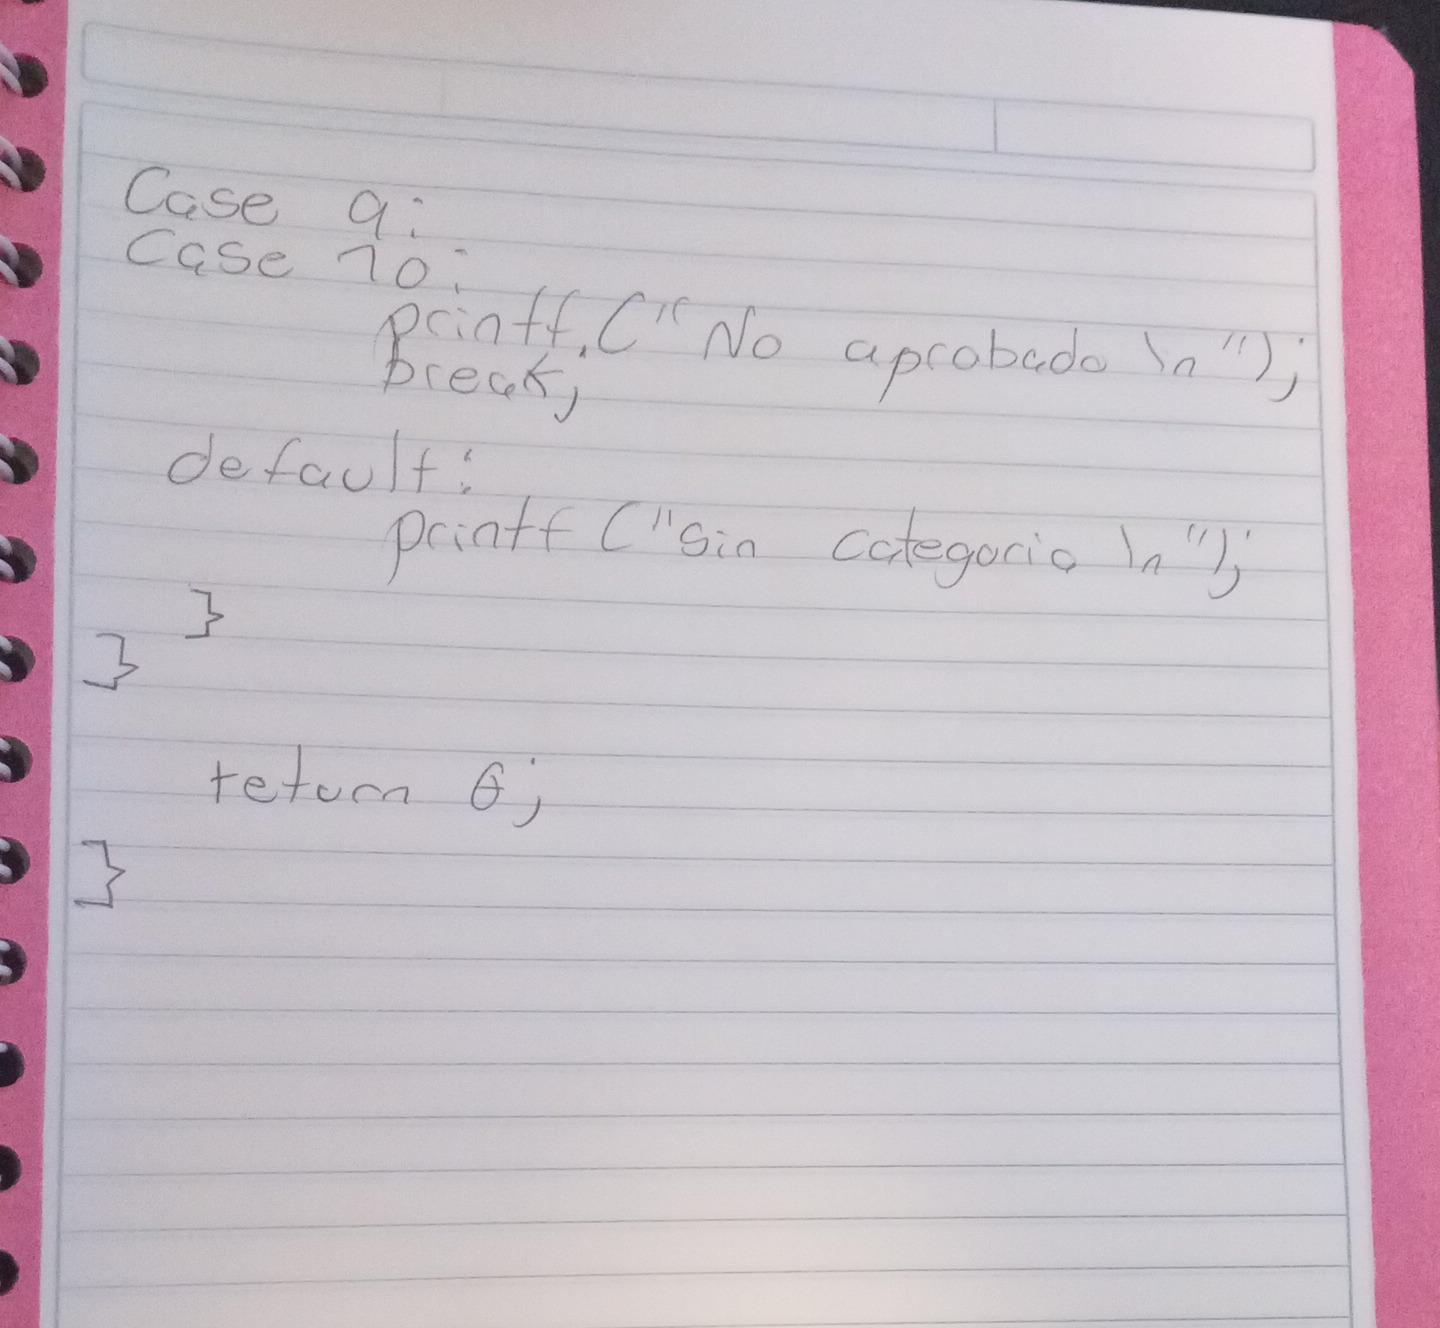 Case 9:
Case 10:
printf.("No aprobado \n");
break;
default:
printf ("Sin categoria \n");
}
}
return 0;
}